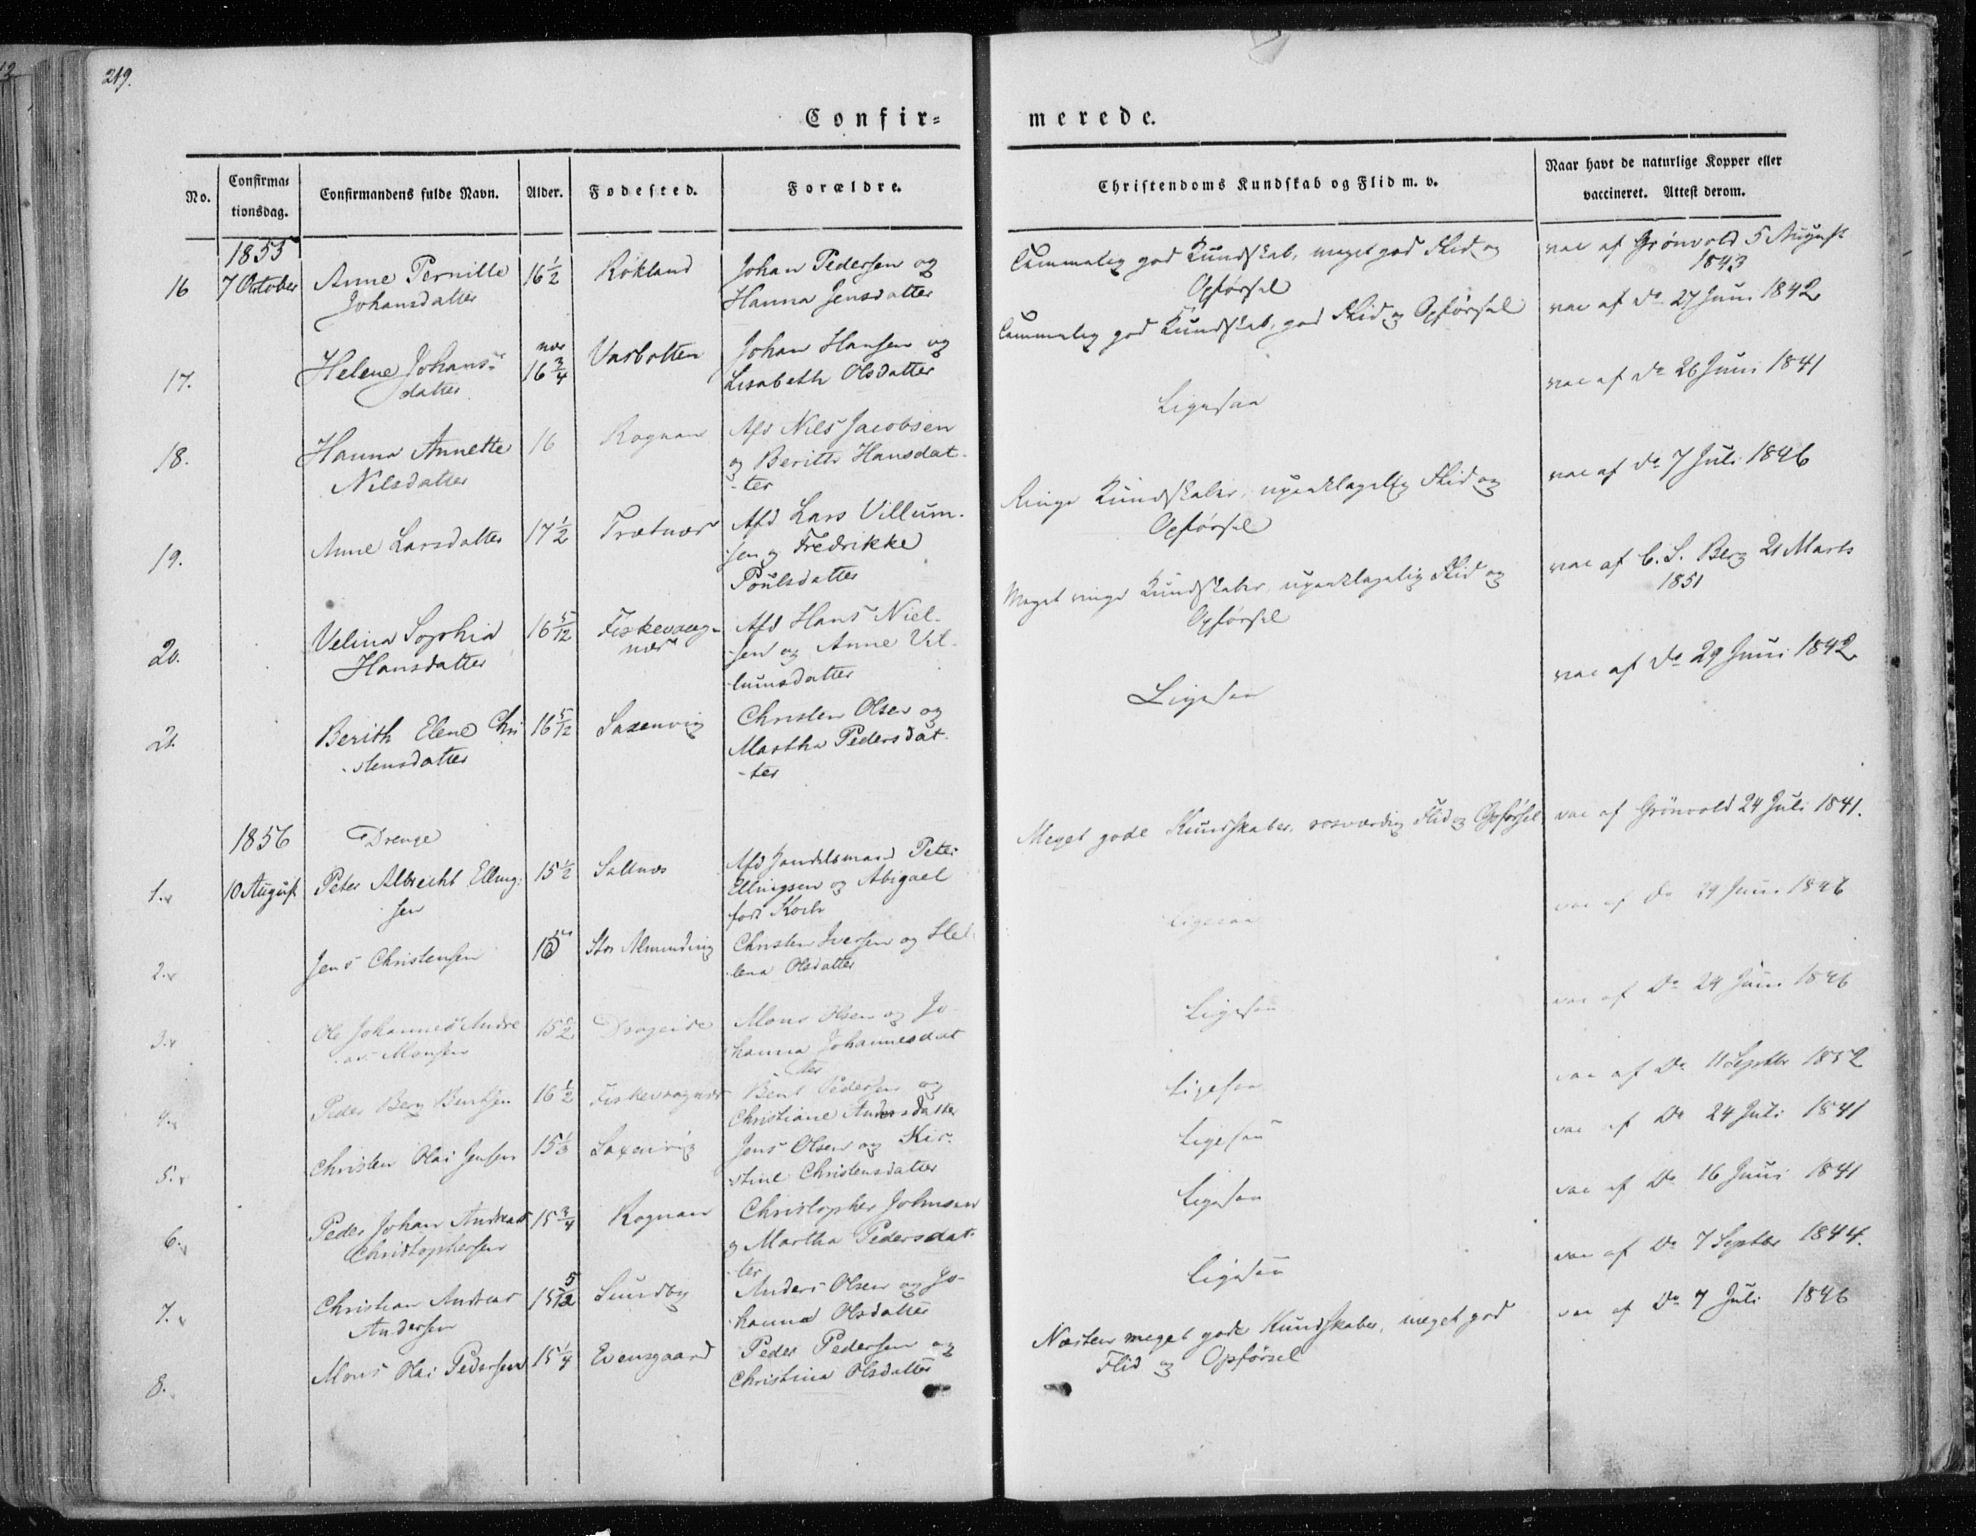 219.
Confir=
merede.
No.
Confirma=
tionsdag.
Confirmandens fulde Navn.
Alder.
Fødested.
Forældre.
Christendoms Kundskab og Flid m. v.
Naar havt de naturlige Kopper eller
vaccineret. Attest derom.
1855
16 7 October Anne Pernille 16 1/2 Røkland Johan Pedersen og
Johansdatter Hanna Jensdatter
Temmelig god Kundskab, meget god Flid og
Opførsel
vac af Grønvold 5 August
1843
17. Helene Johans- 16 3/4 Johan Hansen og
datter Lisabeth Olsdatter
Temmelig god Kundskab, god Flid og Opførsel
vac af Do 27 Juni 1842
18. Hanna Annette 16 Rognan Afd Nils Jacobsen
Nilsdatter og Berith Hansdat-
-ter
Ligesaa
vac af Do 26 Juni 1841
19. Anne Larsdatter 17 1/2 Afd Lars Villum-
-sen og Fredrikke
Poulsdatter
Ringe Kundskaber, upaaklagelig Flid og
Opførsel
vac af Do 7 Juli 1846
20. Velina Sophia 16 5/12 Fiskevaag- Afd Hans Niel-
Hansdatter næs -sen og Anne Vil-
-lumsdatter
Meget ringe Kundskaber, upaaklagelig Flid og
Opførsel
vac af C. S. Berg 21 Marts
1851
21. Berith Elene Chri 16 5/12 Saxenvig Christen Olsen og
-stensdatter Martha Pedersdat-
-ter
Ligesaa
vac af Do 29 Juni 1842
1856 Drenge
1. 10 August Peter Albrecht Elling- 15 1/2 Saltnæs Afd Handelsmand Peter
sen Ellingsen og Abigael
født Koch
Meget gode Kundskaber, rosværdig Flid og Opførsel
vac af Grönvold 24 Juli 1841.
2. Jens Christensen Stor Almending Christen Iversen og Hel-
-lena Olsdatter
Ligesaa
vac af Do 29 Juni 1846
3. Ole Johannes Andre Mons Olsen og Jo-
-as Monsen hanna Johannesdat
ter
Ligesaa
vac af Do 24 Juni 1846
4. Peder Berg Bentsen 16 1/2 Fiskevaagnæs Bent Pedersen og
Christiane Andersdatter
Ligesaa
vac af Do 11 Septbr 1852
5. Christen Olai Jensen 15 1/3 Saxenvig Jens Olsen og Kir-
-stine Christensdatter
Ligesaa
vac af Do 24 Juli 1841
6. Peder Johan Andreas 15 3/4 Rognan Christopher Johnsen
Christophersen og Martha Pedersdat-
-ter
Ligesaa
vac af Do 16 Juni 1841
7. Christian Andreas 15 5/12 Sundby Anders Olsen og Jo-
Andersen hanna Olsdatter
Ligesaa
vac af Do 7 Septbr 1844.
8. Mons Olai Pedersen 15 1/4 Evensgaard Peder Pedersen og
Christina Olsdatter
Næsten meget gode Kundskaber, meget god
Flid og Opførsel
vac af Do 7 Juli 1846